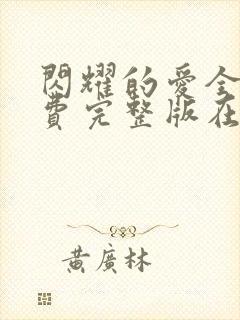 閃耀的愛全
費完整版在
黃廣林